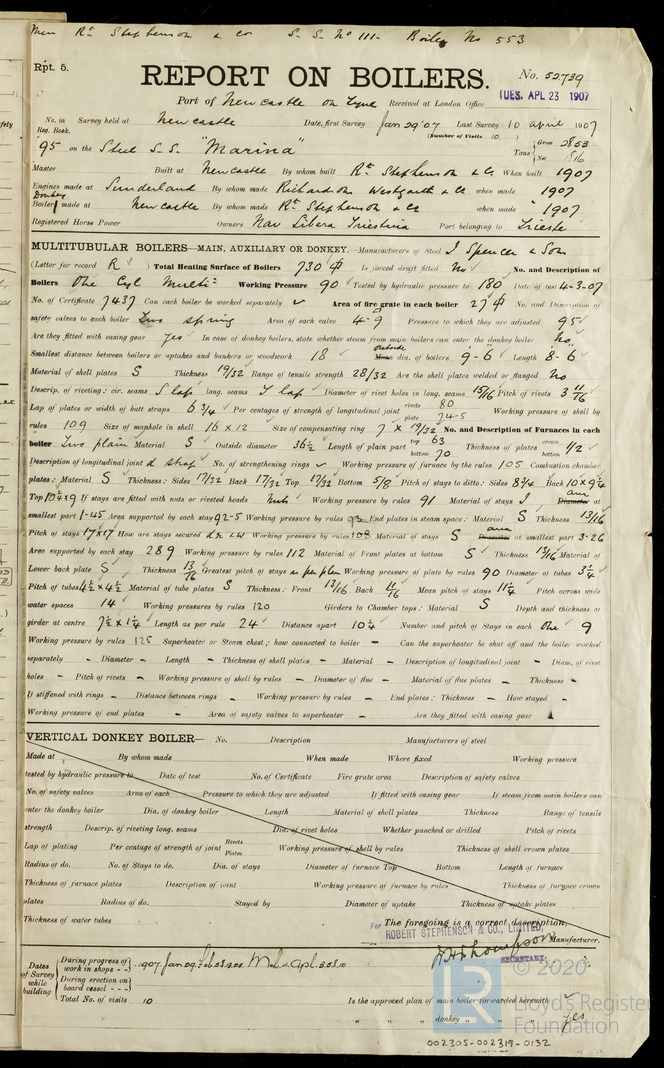 Messrs Rt Stephenson & Co S. S. No 111 - Boiler No 553
Rpt. 5.
REPORT ON BOILERS.
No. 52739
Port of Newcastle on Tyne Received at London Office TUES. APL 23 1907
No. in Reg. Book. Survey held at Newcastle Date, first Survey Jan 29 '07 Last Survey 10 April 1907
(Number of Visits 10)
95 on the Steel S. S. "Marina" Tons Gross 2853 Net 1816
Master Built at Newcastle By whom built Rt Stephenson & Co When built 1907
Engines made at Sunderland By whom made Richardsons Westgarth & Co when made 1907
Donkey Boiler made at Newcastle By whom made Rt Stephenson & Co when made 1907
Registered Horse Power Owners Nav Libera Triestina Port belonging to Trieste
MULTITUBULAR BOILERS—MAIN, AUXILIARY OR DONKEY.—Manufacturers of Steel J Spencer & Sons
(Letter for record R ) Total Heating Surface of Boilers 730 ф Is forced draft fitted No No. and Description of
Boilers One Cyl Multi: Working Pressure 90 Tested by hydraulic pressure to 180 Date of test 4-3-07
No. of Certificate 7437 Can each boiler be worked separately ✓ Area of fire grate in each boiler 27 ф No. and Description of
safety valves to each boiler Two spring Area of each valve 4-9 Pressure to which they are adjusted 95
Are they fitted with easing gear yes In case of donkey boilers, state whether steam from main boilers can enter the donkey boiler no
Smallest distance between boilers or uptakes and bunkers or woodwork 18 outside dia. of boilers 9-6 Length 8-6
Material of shell plates S Thickness 19/32 Range of tensile strength 28/32 Are the shell plates welded or flanged No
Descrip. of riveting: cir. seams S lap long. seams T lap Diameter of rivet holes in long. seams 15/16 Pitch of rivets 3 11/16
Lap of plates or width of butt straps 6 3/4 Per centages of strength of longitudinal joint rivets 80 plate 74-5 Working pressure of shell by
rules 109 Size of manhole in shell 16 x 12 Size of compensating ring 7 x 19/32 No. and Description of Furnaces in each
boiler Two plain Material S Outside diameter 36 1/2 Length of plain part top 63 bottom 70 Thickness of plates crown bottom 1/2
Description of longitudinal joint d strap No. of strengthening rings ✓ Working pressure of furnace by the rules 105 Combustion chamber
plates: Material S Thickness: Sides 17/32 Back 17/32 Top 17/32 Bottom 5/8 Pitch of stays to ditto: Sides 8 3/4 Back 10 x 9 1/4
Top 10 1/4 x 9 If stays are fitted with nuts or riveted heads Nuts Working pressure by rules 91 Material of stays I area at
smallest part 1-45 Area supported by each stay 92-5 Working pressure by rules 93 End plates in steam space: Material S Thickness 13/16
Pitch of stays 17 x 17 How are stays secured Working pressure by rules 108 Material of stays S area at smallest part 3-26
Area supported by each stay 289 Working pressure by rules 112 Material of Front plates at bottom S Thickness 13/16 Material of
Lower back plate S Thickness 13/16 Greatest pitch of stays as per plan Working pressure of plate by rules 90 Diameter of tubes 3 1/4
Pitch of tubes 4 1/2 x 4 1/2 Material of tube plates S Thickness: Front 13/16 Back 11/16 Mean pitch of stays 11 1/4 Pitch across wide
water spaces 14 Working pressures by rules 120 Girders to Chamber tops: Material S Depth and thickness of
girder at centre 7 1/2 x 1 1/4 Length as per rule 24 Distance apart 10 1/4 Number and pitch of Stays in each One 9
Working pressure by rules 125 Superheater or Steam chest; how connected to boiler - Can the superheater be shut off and the boiler worked
separately - Diameter - Length - Thickness of shell plates - Material - Description of longitudinal joint - Diam. of rivet
holes - Pitch of rivets - Working pressure of shell by rules - Diameter of flue - Material of flue plates - Thickness -
If stiffened with rings - Distance between rings - Working pressure by rules - End plates: Thickness - How stayed -
Working pressure of end plates - Area of safety valves to superheater - Are they fitted with easing gear
VERTICAL DONKEY BOILER— No. Description Manufacturers of steel
Made at By whom made When made Where fixed Working pressure
tested by hydraulic pressure to Date of test No. of Certificate Fire grate area Description of safety valves
No. of safety valves Area of each Pressure to which they are adjusted If fitted with easing gear If steam from main boilers can
enter the donkey boiler Dia. of donkey boiler Length Material of shell plates Thickness Range of tensile
strength Descrip. of riveting long. seams Dia. of rivet holes Whether punched or drilled Pitch of rivets
Lap of plating Per centage of strength of joint Rivets Plates Working pressure of shell by rules Thickness of shell crown plates
Radius of do. No. of Stays to do. Dia. of stays Diameter of furnace Top Bottom Length of furnace
Thickness of furnace plates Description of joint Working pressure of furnace by rules Thickness of furnace crown
plates Radius of do. Stayed by Diameter of uptake Thickness of uptake plates
Thickness of water tubes The foregoing is a correct description,
For ROBERT STEPHENSON & CO., LIMITED,
Manufacturer.
SECRETARY.
Dates of Survey while building
During progress of work in shops - - 1907 Jan 29
During erection on board vessel - - -
Total No. of visits 10 Is the approved plan of main boiler forwarded herewith
" " " donkey " " " yes
© 2020
Lloyd's Register
Foundation
002305-002319-0132